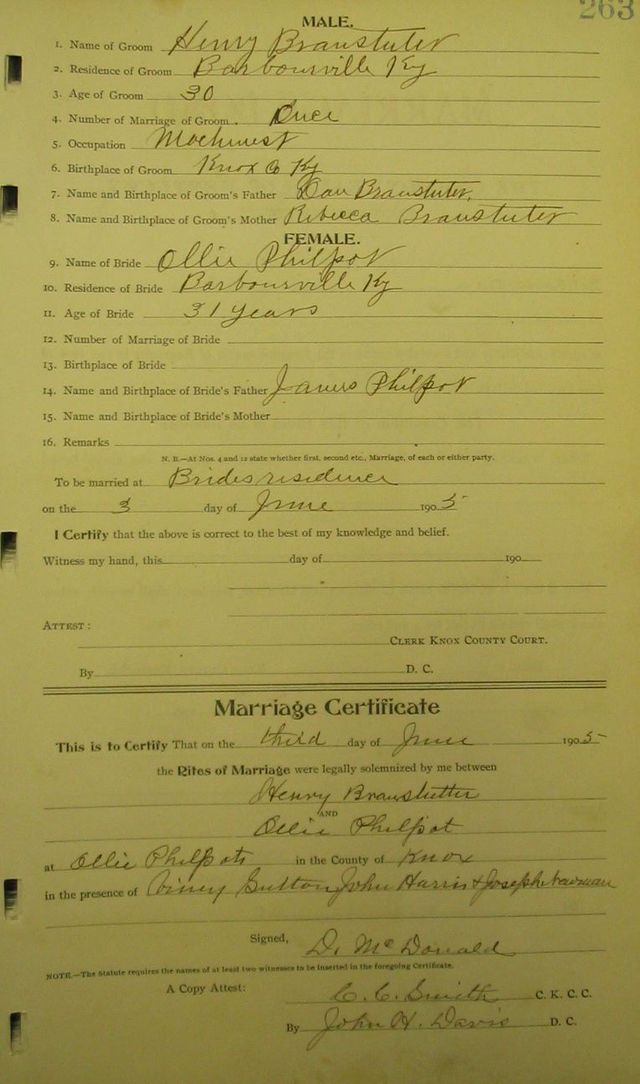 263
MALE.
1. Name of Groom Henry Branstuter
2. Residence of Groom Barbourville Ky
3. Age of Groom 30
4. Number of Marriage of Groom. Once
5. Occupation Machinest
6. Birthplace of Groom Knox Co Ky
7. Name and Birthplace of Groom's Father Dan Branstuter,
8. Name and Birthplace of Groom's Mother Rebecca Branstuter
FEMALE.
9. Name of Bride Ollie Philpot
10. Residence of Bride Barbourville Ky
11. Age of Bride 31 years
12. Number of Marriage of Bride
13. Birthplace of Bride
14. Name and Birthplace of Bride's Father James Philpot
15. Name and Birthplace of Bride's Mother
16. Remarks
N. B.—At Nos. 4 and 12 state whether first, second etc., Marriage, of each or either party.
To be married at Brides residence
on the 3 day of June 1905
I Certify that the above is correct to the best of my knowledge and belief.
Witness my hand, this day of 190
ATTEST:
CLERK KNOX COUNTY COURT.
By D. C.
Marriage Certificate
This is to Certify That on the third day of June 1905
the Rites of Marriage were legally solemnized by me between
Henry Branstutter
AND
Ollie Philpot
at Ollie Philpots in the County of Knox
in the presence of Viney Sutton, John Harris & Joseph Newman
Signed, D. McDonald
NOTE.—The Statute requires the names of at least two witnesses to be inserted in the foregoing Certificate.
A Copy Attest: C. C. Smith C. K. C. C.
By John H. Davis D. C.